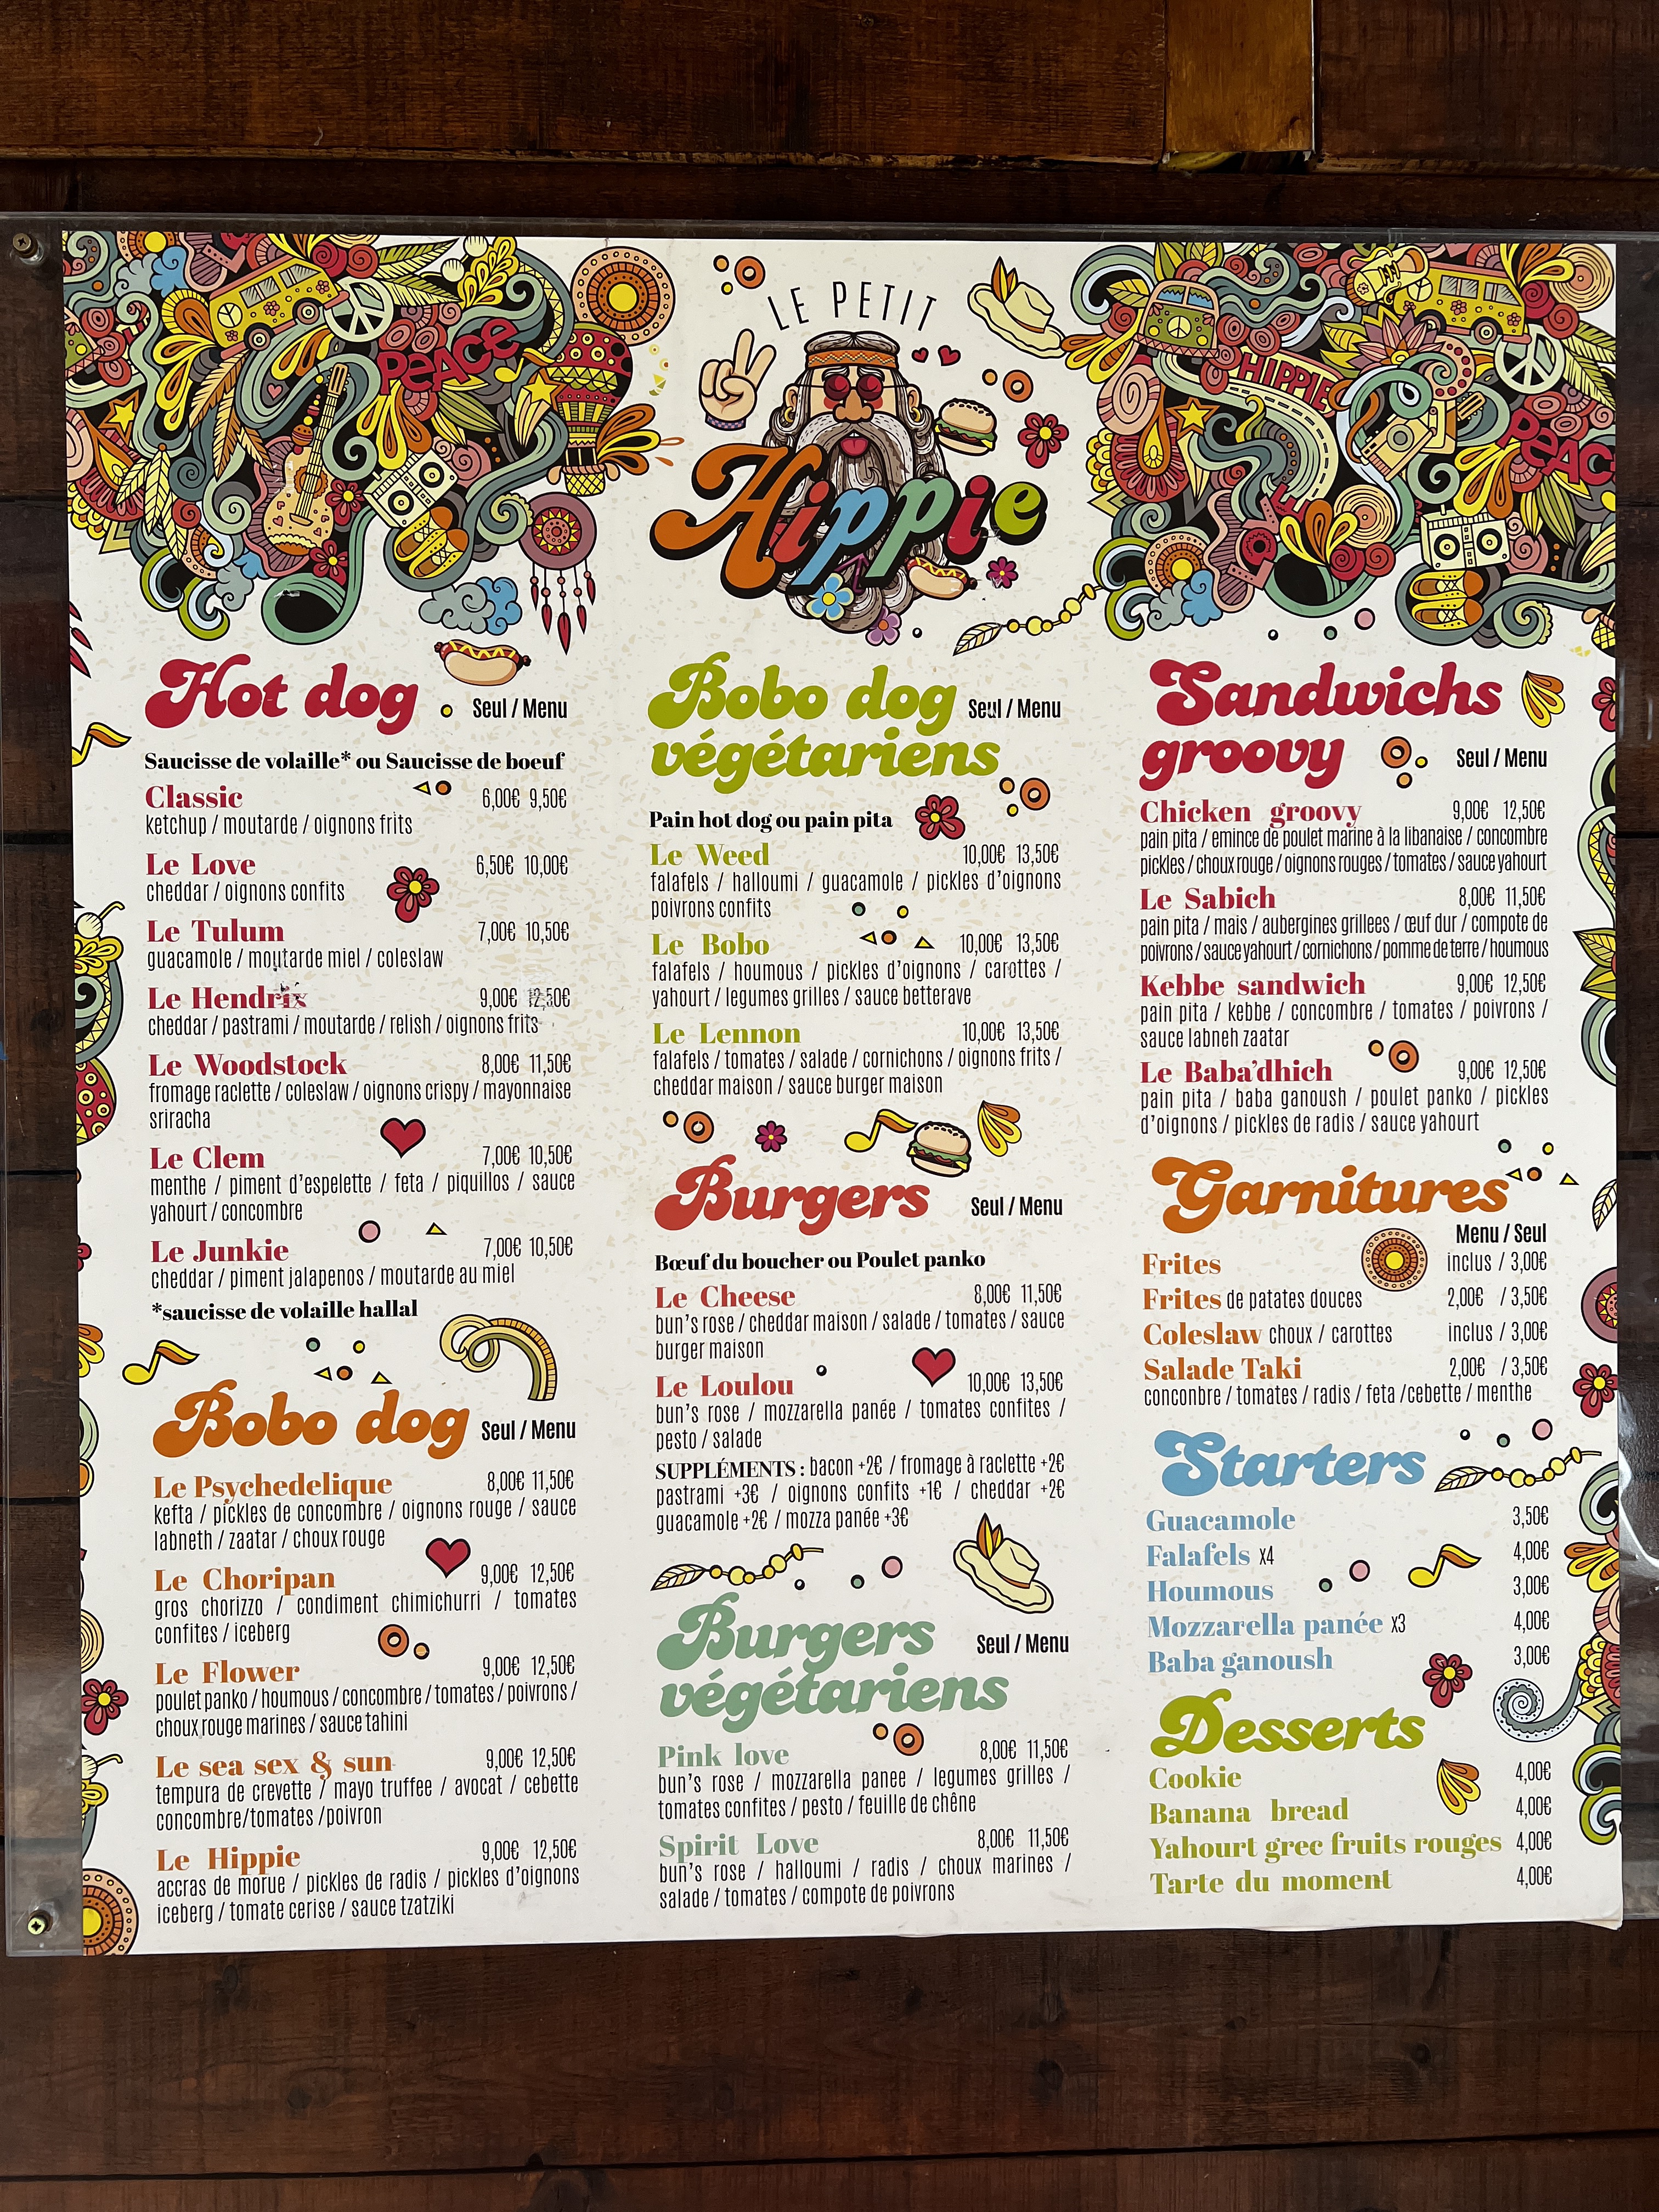 PEACE
LE PETIT
Hippie
HIPPIE
PEAC
LOVE
Hot dog
Seul / Menu
Saucisse de volaille* ou Saucisse de boeuf
Classic 6,00€ 9,50€
ketchup / moutarde / oignons frits
Le Love 6,50€ 10,00€
cheddar / oignons confits
Le Tulum 7,00€ 10,50€
guacamole / moutarde miel / coleslaw
Le Hendrix 9,00€ 12,50€
cheddar / pastrami / moutarde / relish / oignons frits
Le Woodstock 8,00€ 11,50€
fromage raclette / coleslaw / oignons crispy / mayonnaise
sriracha
Le Clem 7,00€ 10,50€
menthe / piment d'espelette / feta / piquillos / sauce
yahourt / concombre
Le Junkie 7,00€ 10,50€
cheddar / piment jalapenos / moutarde au miel
*saucisse de volaille hallal
Bobo dog Seul / Menu
Le Psychedelique 8,00€ 11,50€
kefta / pickles de concombre / oignons rouge / sauce
labneth / zaatar / choux rouge
Le Choripan 9,00€ 12,50€
gros chorizzo / condiment chimichurri / tomates
confites / iceberg
Le Flower 9,00€ 12,50€
poulet panko / houmous / concombre / tomates / poivrons /
choux rouge marines / sauce tahini
Le sea sex & sun 9,00€ 12,50€
tempura de crevette / mayo truffee / avocat / cebette
concombre/tomates /poivron
Le Hippie 9,00€ 12,50€
accras de morue / pickles de radis / pickles d'oignons
iceberg / tomate cerise / sauce tzatziki
Bobo dog Seul / Menu
végétariens
Pain hot dog ou pain pita
Le Weed 10,00€ 13,50€
falafels / halloumi / guacamole / pickles d'oignons
poivrons confits
Le Bobo 10,00€ 13,50€
falafels / houmous / pickles d'oignons / carottes /
yahourt / legumes grilles / sauce betterave
Le Lennon 10,00€ 13,50€
falafels / tomates / salade / cornichons / oignons frits /
cheddar maison / sauce burger maison
Burgers Seul / Menu
Bœuf du boucher ou Poulet panko
Le Cheese 8,00€ 11,50€
bun's rose / cheddar maison / salade / tomates / sauce
burger maison
Le Loulou 10,00€ 13,50€
bun's rose / mozzarella panée / tomates confites /
pesto / salade
SUPPLÉMENTS : bacon +2€ / fromage à raclette +2€
pastrami +3€ / oignons confits +1€ / cheddar +2€
guacamole +2€ / mozza panée +3€
Burgers Seul / Menu
végétariens
Pink love 8,00€ 11,50€
bun's rose / mozzarella panee / legumes grilles /
tomates confites / pesto / feuille de chêne
Spirit Love 8,00€ 11,50€
bun's rose / halloumi / radis / choux marines /
salade / tomates / compote de poivrons
Sandwichs
groovy Seul / Menu
Chicken groovy 9,00€ 12,50€
pain pita / emince de poulet marine à la libanaise / concombre
pickles / choux rouge / oignons rouges / tomates / sauce yahourt
Le Sabich 8,00€ 11,50€
pain pita / mais / aubergines grillees / œuf dur / compote de
poivrons / sauce yahourt / cornichons / pomme de terre / houmous
Kebbe sandwich 9,00€ 12,50€
pain pita / kebbe / concombre / tomates / poivrons /
sauce labneh zaatar
Le Baba'dhich 9,00€ 12,50€
pain pita / baba ganoush / poulet panko / pickles
d'oignons / pickles de radis / sauce yahourt
Garnitures
Menu / Seul
Frites inclus / 3,00€
Frites de patates douces 2,00€ / 3,50€
Coleslaw choux / carottes inclus / 3,00€
Salade Taki 2,00€ / 3,50€
conconbre / tomates / radis / feta /cebette / menthe
Starters
Guacamole 3,50€
Falafels X4 4,00€
Houmous 3,00€
Mozzarella panée X3 4,00€
Baba ganoush 3,00€
Desserts
Cookie 4,00€
Banana bread 4,00€
Yahourt grec fruits rouges 4,00€
Tarte du moment 4,00€